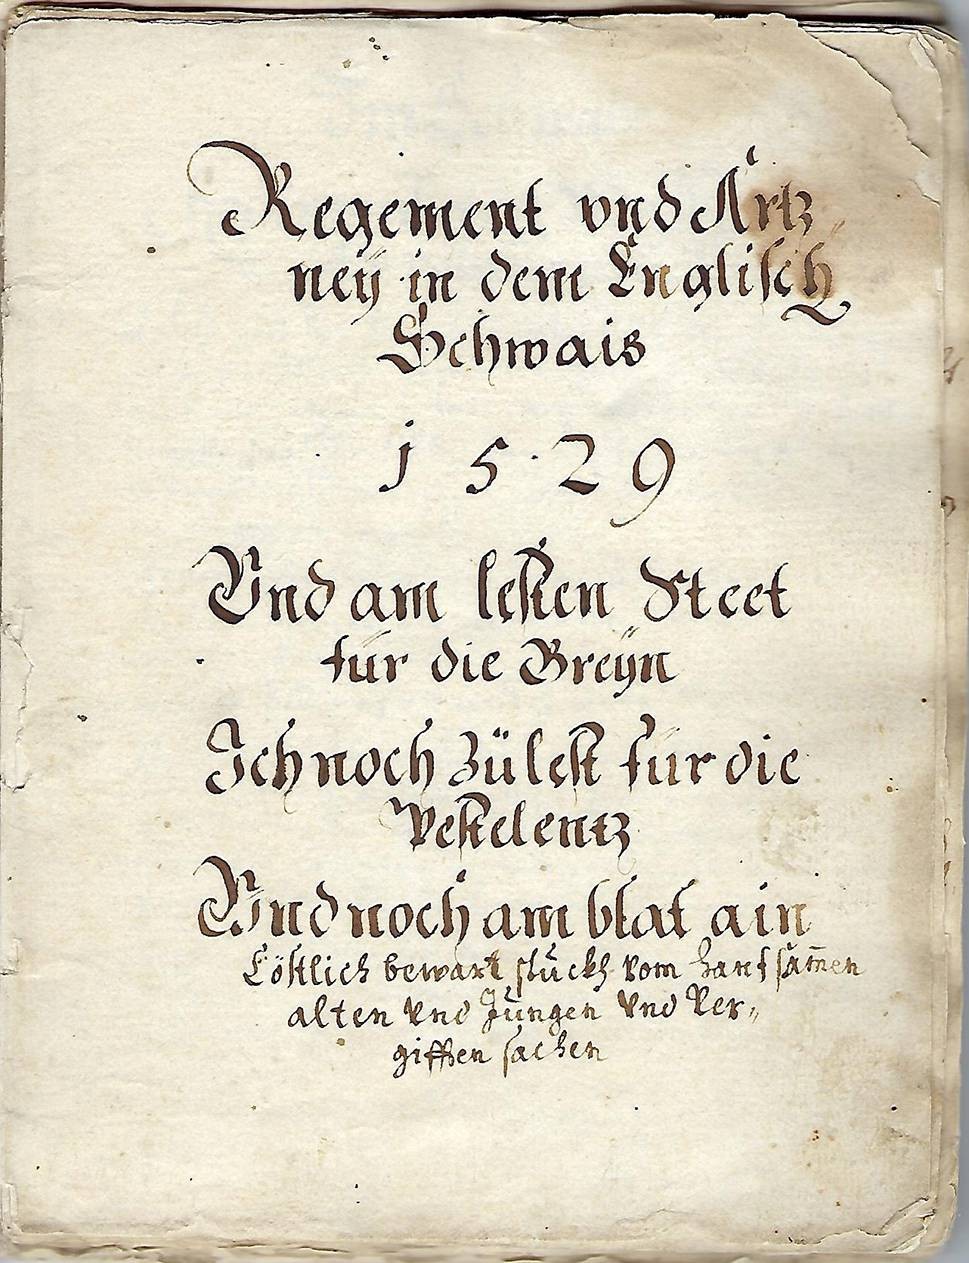 Regement vnd Artz„
neÿ in dem Englisch
Schwais
1 5 · 2 9
Vnd am lesten Steet
für die Breÿn
Ich noch zü lest für die
Pestelentz
Vnd noch am blat ain
Cöstlich bewart stuckh vom hanf sam̅en
alten vnd Jungen vnd ver„
gifften sachen